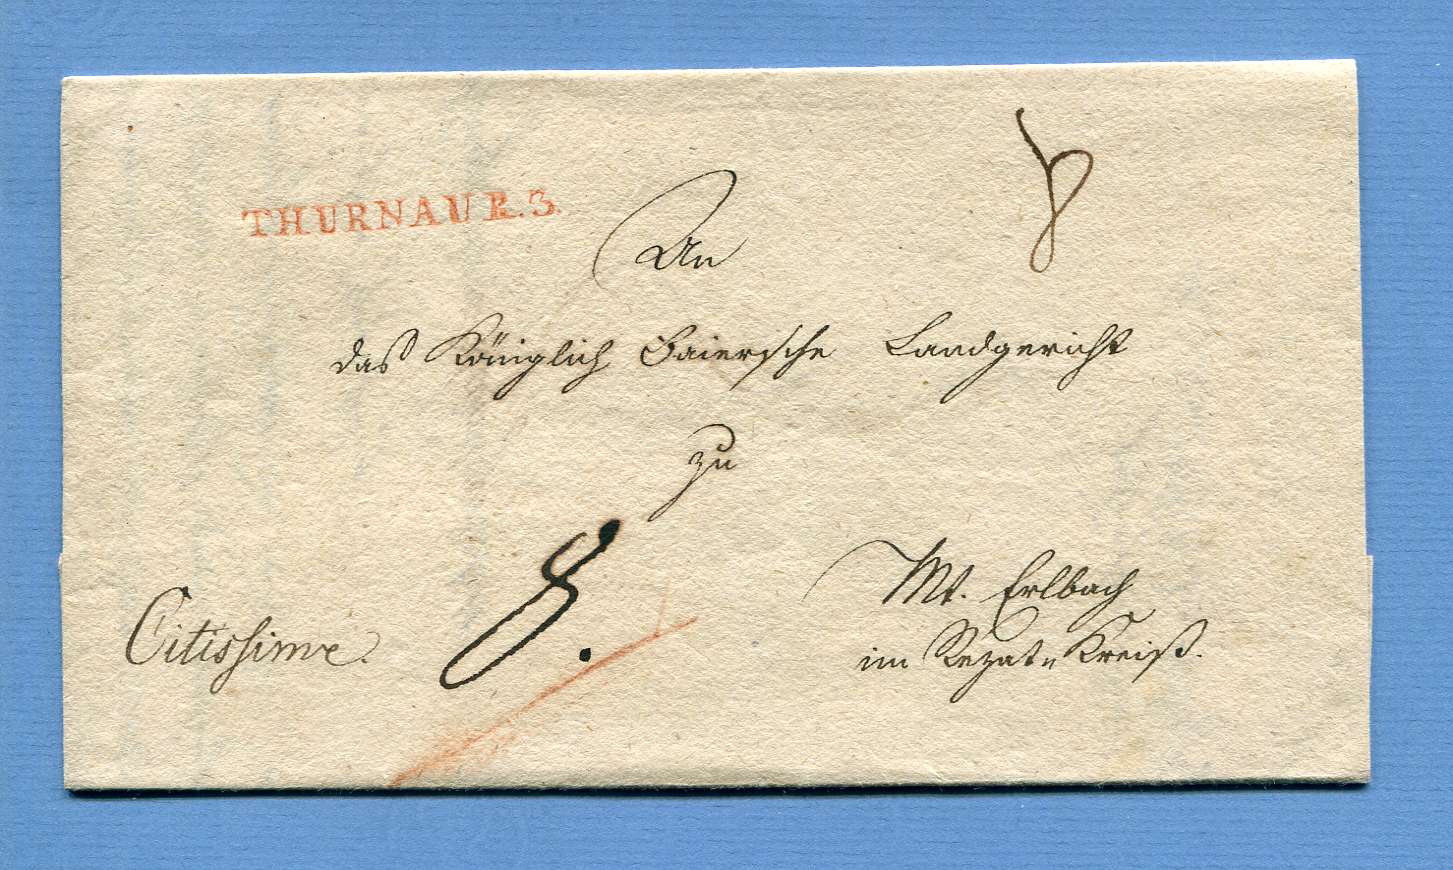 THURNAU R.3.
8
An
das Königlich Baierische Landgericht
zu
Mt. Erlbach
im Rezat Kreiß.
Citissime.
8.